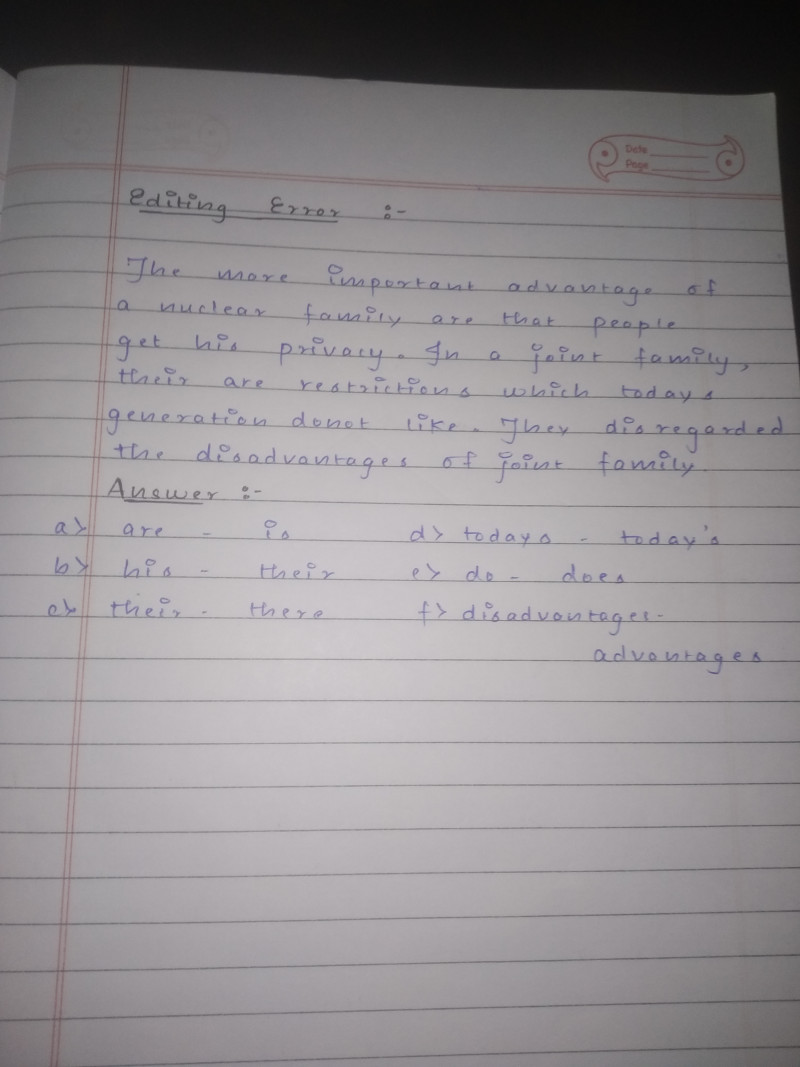 Date
Page
Editing Error :-
The more important advantage of
a nuclear family are that people
get his privacy. In a joint family,
their are restrictions which todays
generation donot like. They disregarded
the disadvantages of joint family
Answer :-
a) are - is d) todays - today's
b) his - their e) do - does
c) their - there f) disadvantages-
advantages